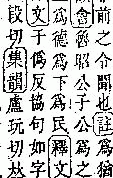 前之令聞也註爲猶
會魯昭公子公爲之
爲德爲下爲民釋文
文于僞反協句如字
段切集韻盧玩切𠀤